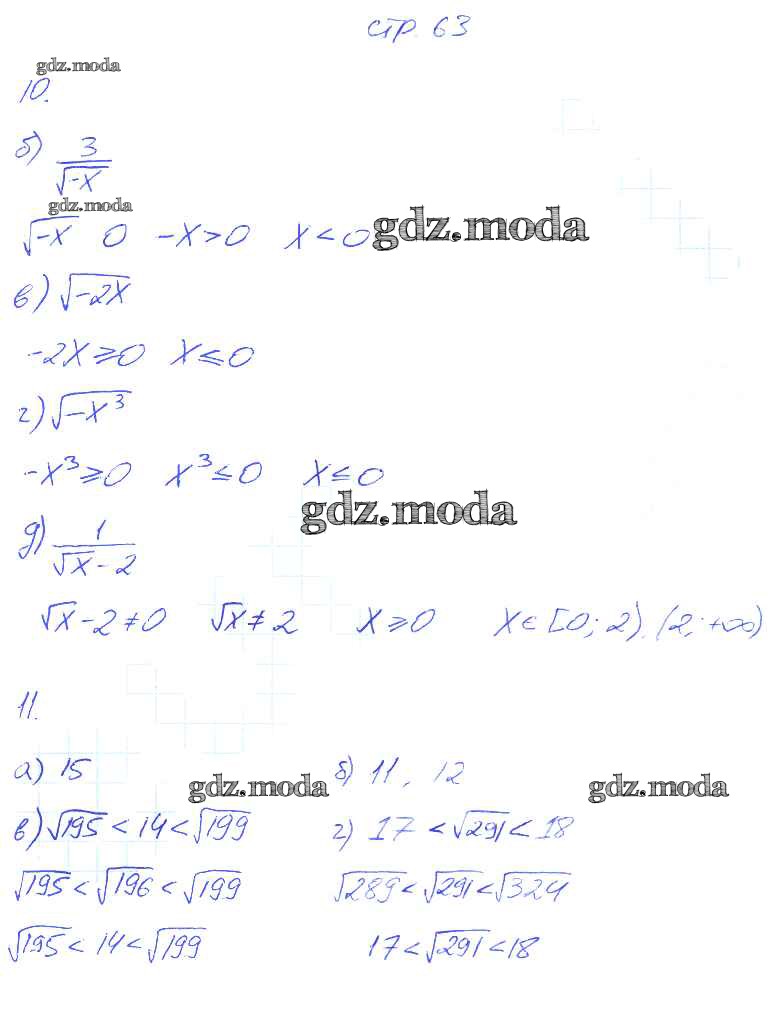 стр. 63
gdz.moda
10.
б) 3/√-x
gdz.moda
√-x 0 -x>0 x<0 gdz.moda
в) √-2x
-2x≥0 x≤0
г) √-x³
-x³≥0 x³≤0 x≤0
gdz.moda
д) 1/(√x-2)
√x-2≠0 √x≠2 x≥0 x∈[0;2), (2;+∞)
11.
а) 15 gdz.moda б) 11, 12 gdz.moda
в) √195<14<√199 г) 17<√291<18
√195<√196<√199 √289<√291<√324
√195<14<√199 17<√291<18